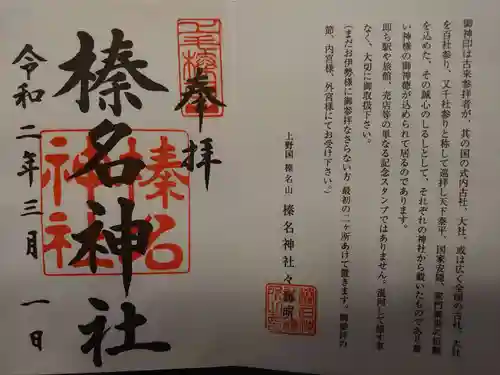 御神印は古来参拝者が、其の国の式内古社、大社、或は広く全国の古社、大社
を百社参り、又千社参りと称して巡拝し天下泰平、国家安穏、家門繁栄の祈願
を込めた、その誠心のしるしとして、それぞれの神社から戴いたものであり尊
い神様の御神徳が込められて居るのであります。
即ち駅や旅館、売店等の単なる記念スタンプではありません。混同して穢す事
なく、大切に御取扱下さい。
(まだお伊勢様に御参拝なさらない方 最初の二ヶ所あけて置きます。御参拝の
節、内宮様、外宮様にてお受け下さい。)
上野国 榛名山 榛名神社々務所
奉拝
榛名神社
令和二年三月一日
榛名
神社